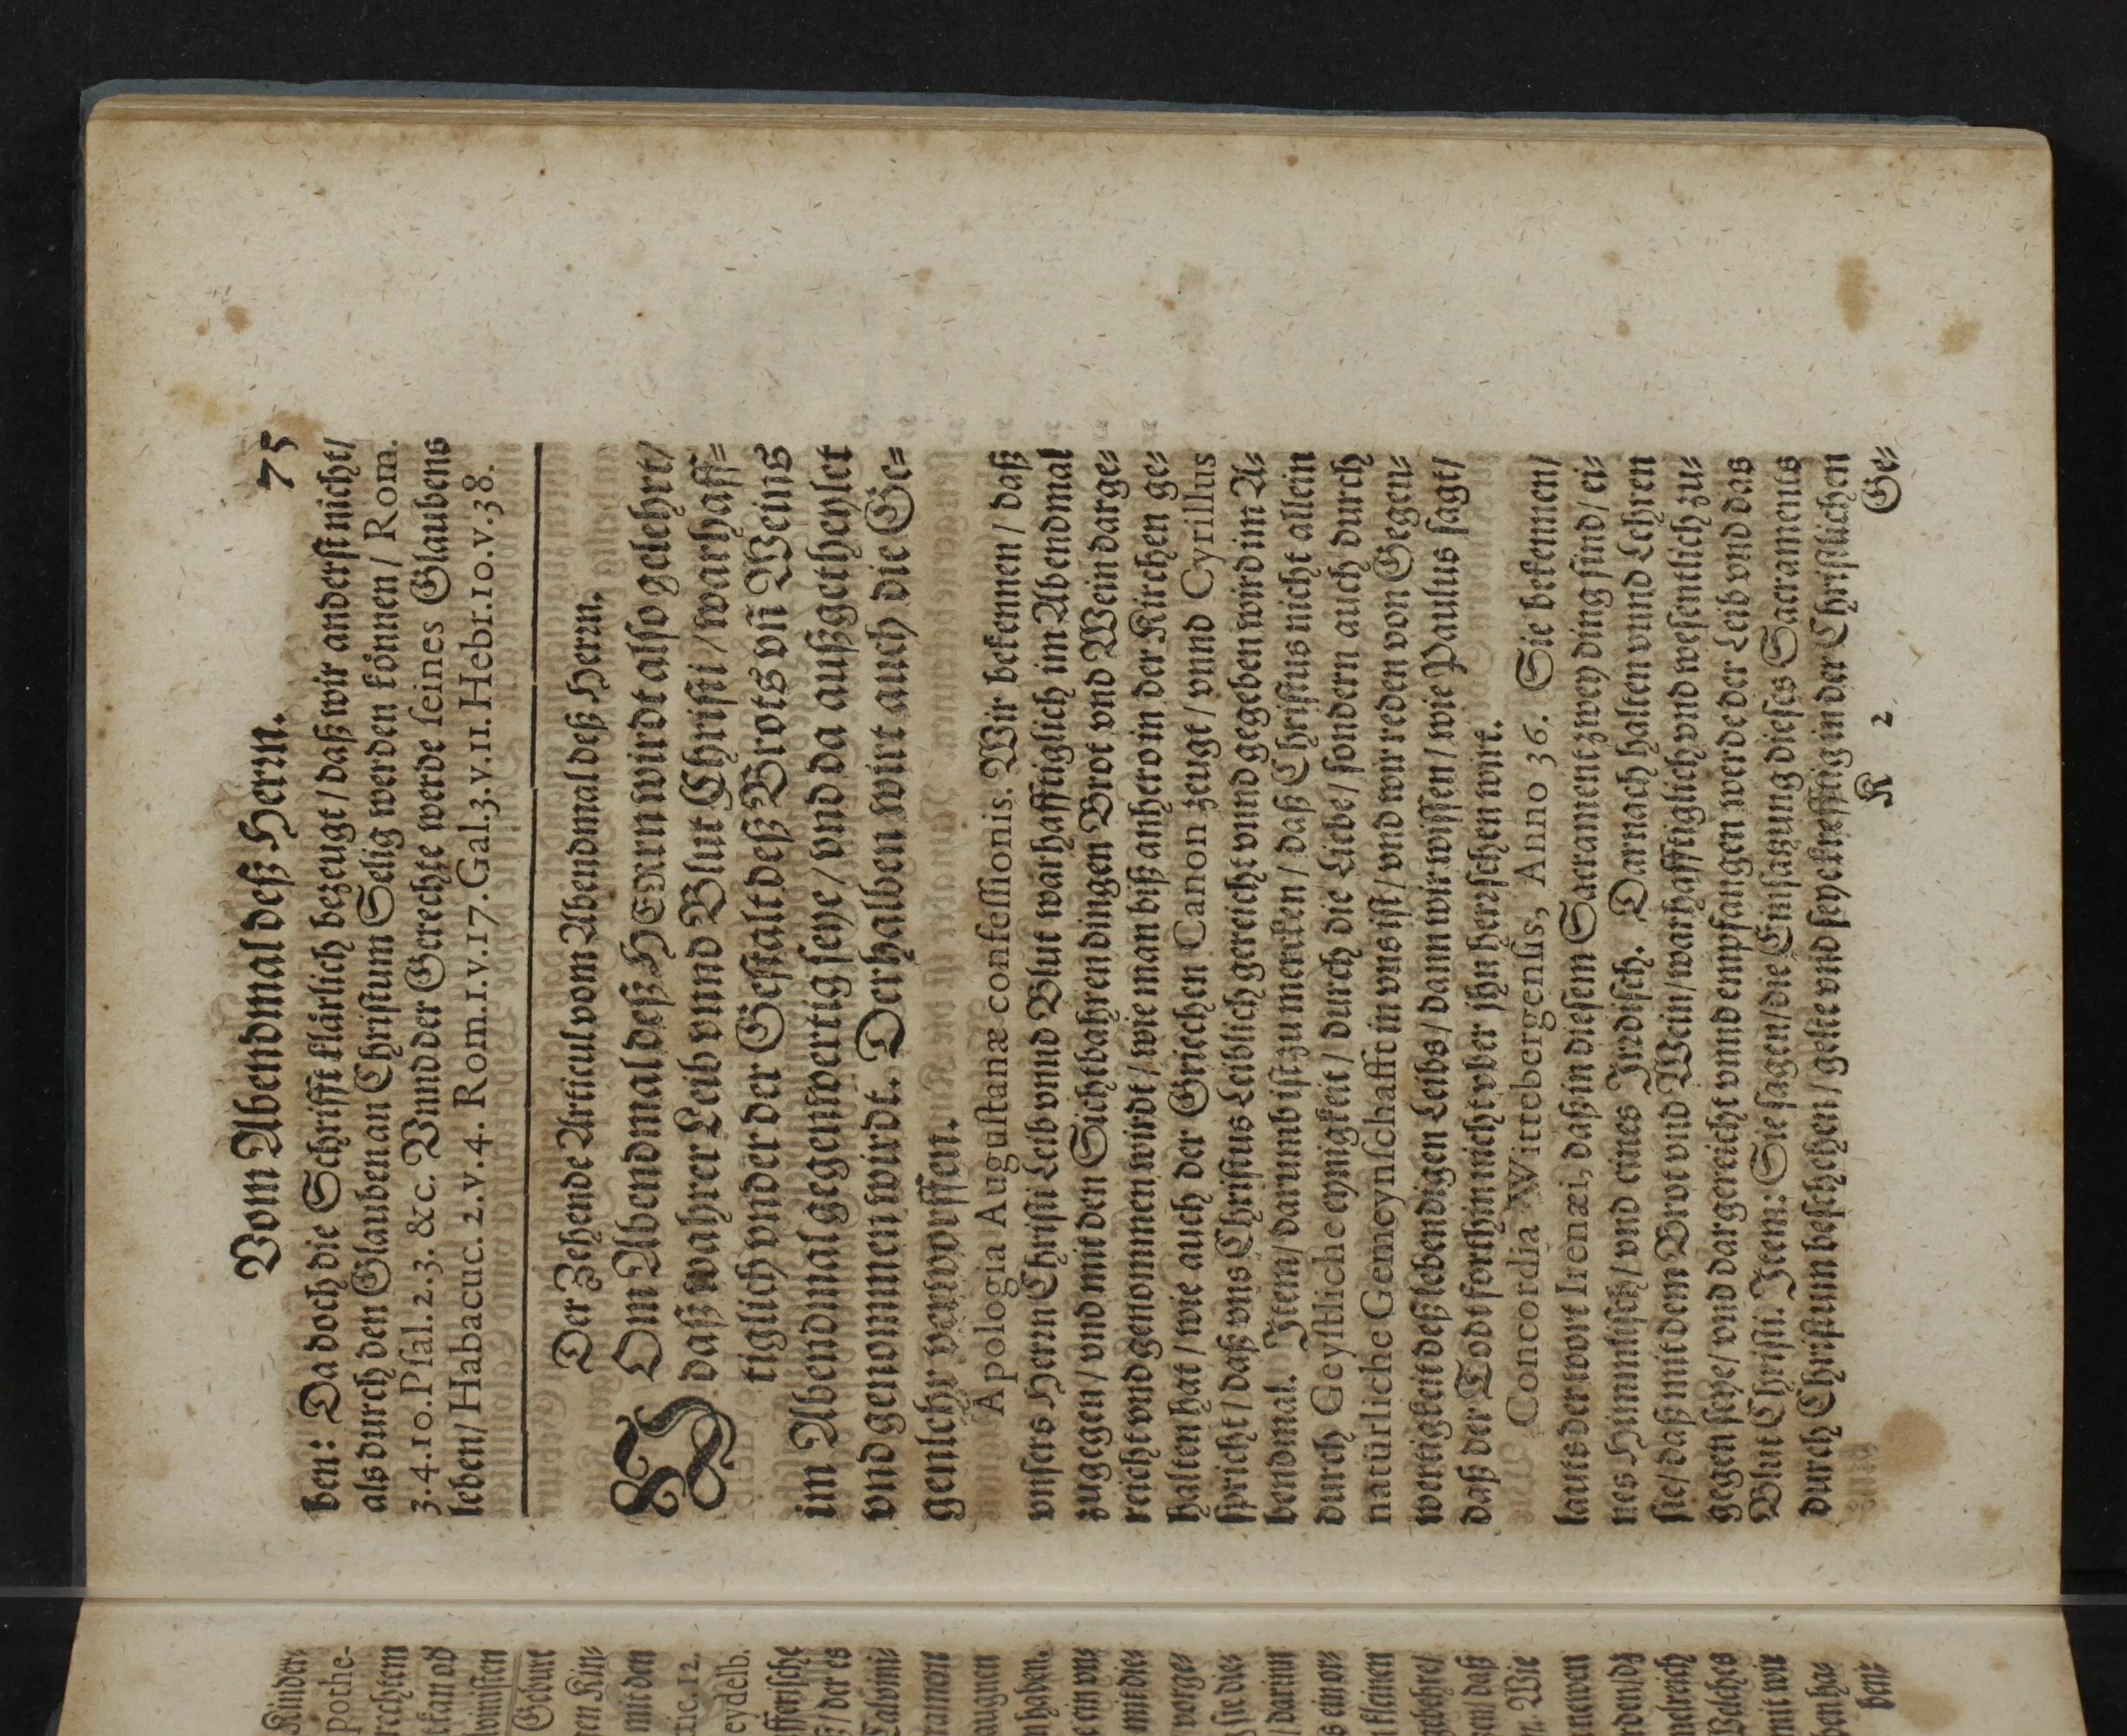 Vom Abendmal deß Herrn. 75
ben: Da doch die Schrifft klärlich bezeugt / daß wir anderst nicht /
als durch den Glauben an Christum Selig werden können / Rom.
3.4.10. Psal. 2. 3. &c. Vnnd der Gerechte werde seines Glaubens
leben / Habacuc. 2. v. 4. Rom. 1. v. 17. Gal. 3. v. 11. Hebr. 10. v. 38.
Der Zehende Articul vom Abendmal deß Herrn.
VOm Abendmal deß HERrn wirdt also gelehrt /
daß wahrer Leib vnnd Blut Christi / warhaff=
tiglich vnder der Gestalt deß Brots vñ Weins
im Abendmal gegenwertig seye / vnd da außgetheylet
vnd genommen wirdt. Derhalben wirt auch die Ge=
genlehr verworffen.
Apologia Augustanæ confessionis. Wir bekennen / daß
vnsers Herrn Christi Leib vnnd Blut warhafftiglich im Abendmal
zugegen / vnd mit den Sichtbahren dingen Brot vnd Wein darge=
reicht vnd genommen wirdt / wie man biß anhero in der Kirchen ge=
halten hat / wie auch der Griechen Canon zeugt / vnnd Cyrillus
spricht / daß vns Christus Leiblich gereicht vnnd gegeben wird im A=
bendmal. Item / darumb ist zu mercken / daß Christus nicht allein
durch Geystliche eynigkeit / durch die Liebe / sondern auch durch
natürliche Gemeynschafft in vns ist / vnd wir reden von Gegen=
wertigkeit deß lebendigen Leibs / dann wir wissen / wie Paulus sagt /
daß der Todt forthin nicht vber jhn herrschen wirt.
Concordia Wittebergensis, Anno 36. Sie bekennen /
lauts der wort Irenæi, daß in diesem Sacrament zwey ding sind / ei=
nes Himmlisch / vnd eines Irrdisch. Darnach halten vnnd Lehren
sie / daß mit dem Brot vnd Wein / warhafftiglich vnd wesentlich zu=
gegen seye / vnd dargereicht vnnd empfangen werde der Leib vnd das
Blut Christi. Item: Sie sagen / die Einsatzung dieses Sacraments
durch Christum beschehen / gelte vnd seye krefftig in der Christlichen
K 2 Ge=
Kinder=
pothe-
rechtem
Geburt
ren Kin=
mit den
tic. 12.
eydelb.
ffferische
z / der es
Calvini=
augnen
n haben.
e ein vn=
mit die=
vorge=
sie die=
/ darinn
s ein vn=
en / daß
n. Wie
newen
rden / dz
melreich
Welches
mit wir
ben ha=
ben=